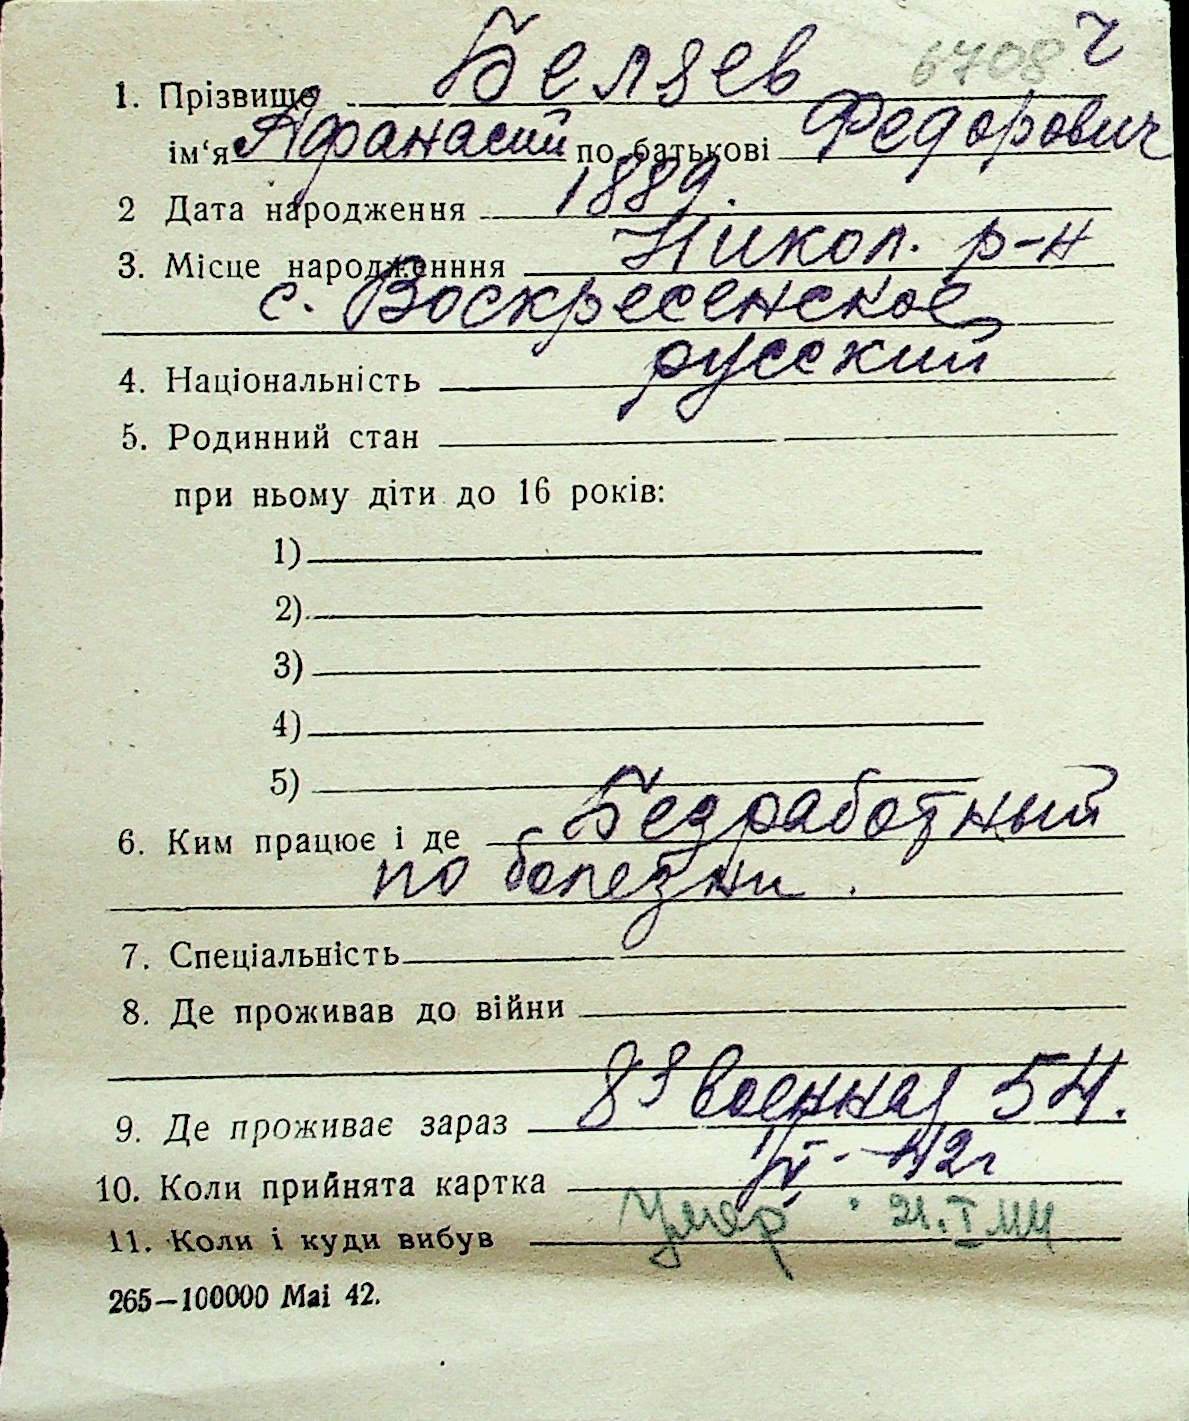 6708 ч
1. Прізвище Беляев
ім‘я Афанасий по батькові Федорович
2 Дата народження 1889.
3. Місце народженння Никол. р-н
с. Воскресенское
4. Національність русский
5. Родинний стан
при ньому діти до 16 років:
1)
2)
3)
4)
5)
6. Ким працює і де Безработный
по болезни.
7. Спеціальність
8. Де проживав до війни
9. Де проживає зараз 8 Военная 54.
10. Коли прийнята картка 42г
11. Коли і куди вибув Умер 21. I 44
265—100000 Mai 42.